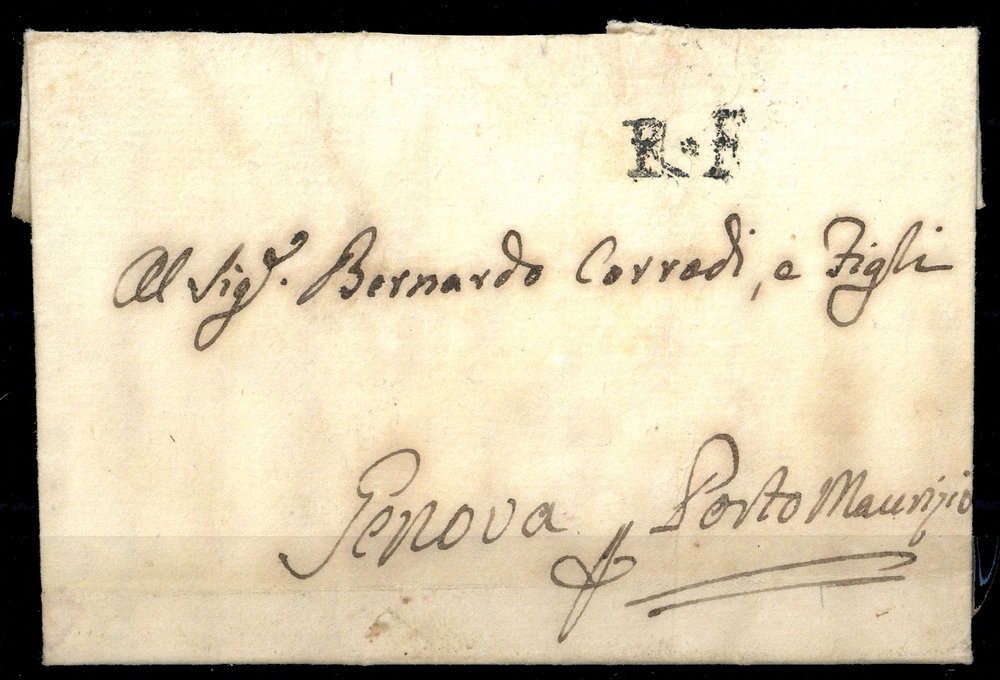 R·F
Al Sig.r Bernardo Corradi, e Figli
Genova p Porto Maurizio